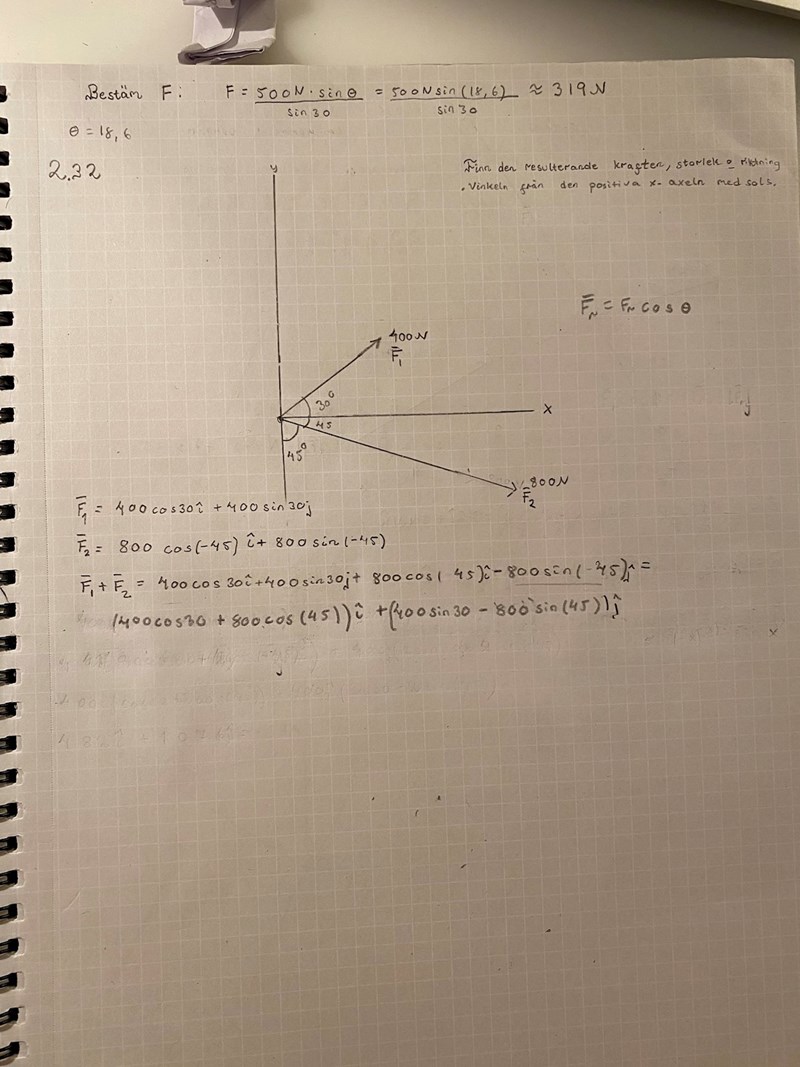 Bestäm F: F = 500N · sin θ / sin 30 = 500N sin(18,6) / sin 30 ≈ 319N
θ = 18,6
2.32
y
Finn den resulterande kraften, storlek o riktning
. Vinkeln från den positiva x-axeln med sols.
F̄ₙ = Fₙ cos θ
400N
F̄₁
30°
x
45
45°
800N
F̄₂
F̄₁ = 400 cos30 î + 400 sin 30j
F̄₂ = 800 cos(-45) î + 800 sin(-45)
F̄₁ + F̄₂ = 400 cos 30 î + 400 sin 30j + 800 cos( 45) î - 800 sin(-45)j =
(400cos30 + 800 cos(45)) î + (400 sin 30 - 800 sin(45)) ĵ